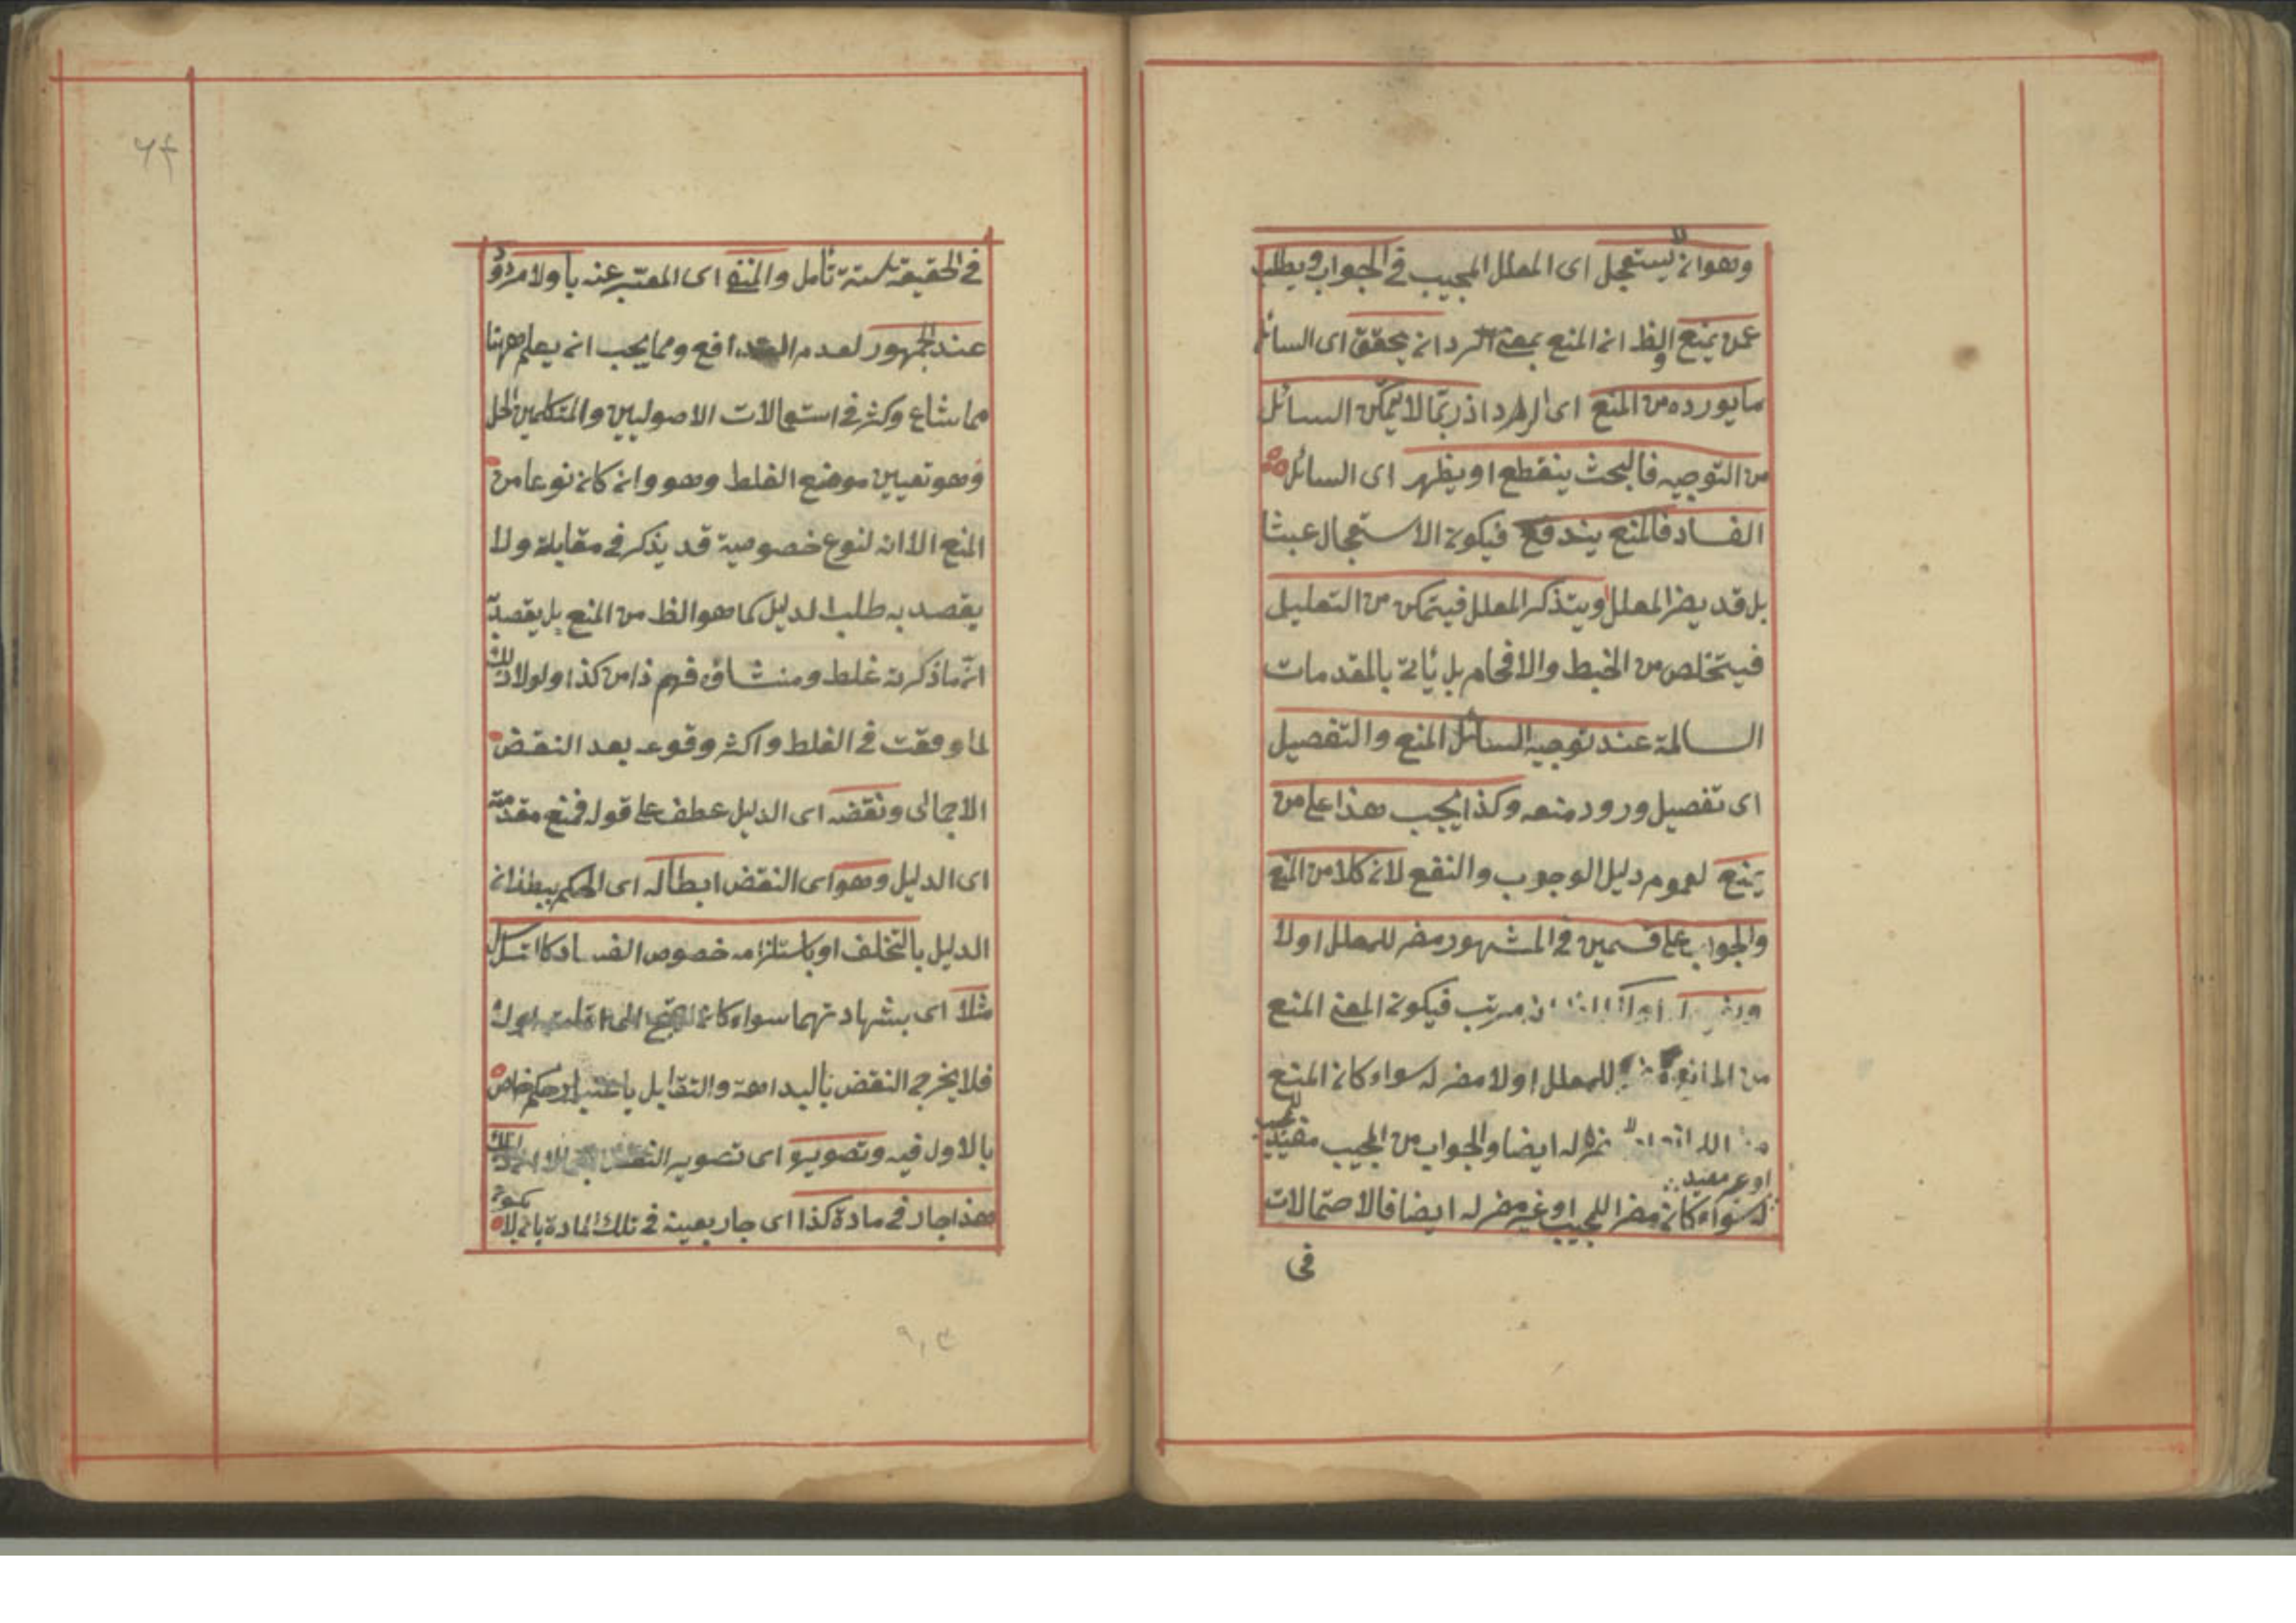 وهو ان لا يستعجل اى المعلل المجيب فى الجواب ويطلب
عمن يمنع والظ ان المنع بمعنى الرد ان يحقق اى السائل
ما يورده من المنع اى الرد اذ ربما لا يمكن السائل
من التوجيه فالبحث ينقطع او يظهر اى السائل
الفساد فالمنع يندفع فيكون الاستعجال عبثا
بل قد يضر المعلل او يتذكر المعلل فيتمكن من التعليل
فيتخلص من الخبط والافحام بل يأتى بالمقدمات
السالمة عند توجيه السائل المنع والتفصيل
اى تفصيل ورود منعه وكذا يجب هذا على من
يمنع لعموم دليل الوجوب والنفع لان كلا من المنع
والجواب على قسمين فى المشهور مضر للمعلل اولا
مرتب فيكون المعنى المنع
من المانع للمعلل اولا مضر له سواء كان المنع
له ايضا والجواب من المجيب مفيد للمجيب
او غير مفيد
له سواء كان مضرا للمجيب او غير مضر له ايضا فالاحتمالات
فى
٦٤
فى الحقيقة ستة تأمل والمنع اى المعبر عنه باولا مردود
عند الجمهور لعدم التدافع ومما يجب ان يعلم ههنا
مما شاع وكثر فى استعمالات الاصوليين والمتكلمين الحل
وهو تعيين موضع الغلط وهو وان كان نوعا من
المنع الا انه لنوع خصوصية قد يذكر فى مقابلة ولا
يقصد به طلب الدليل كما هو الظ من المنع بل يقصد به
ان ما ذكرته غلط ومنشاؤه فهم ذا من كذا ولولا ذلك
لما وقعت فى الغلط واكثر وقوعه بعد النقض
الاجمالى ونقضه اى الدليل عطف على قوله فمنع مقدمته
اى الدليل وهو اى النقض ابطاله اى الحكم ببطلان
الدليل بالتخلف او باستلزامه خصوص الفساد كالتسلسل
مثلا اى بشهادتهما سواء كان
فلا يخرج النقض بالبداهة والتقابل باعتبار حكم خاص
بالاول فيه وتصويره اى تصوير النقض
هذا جار فى مادة كذا اى جار بعينه فى تلك المادة بان لا يكون